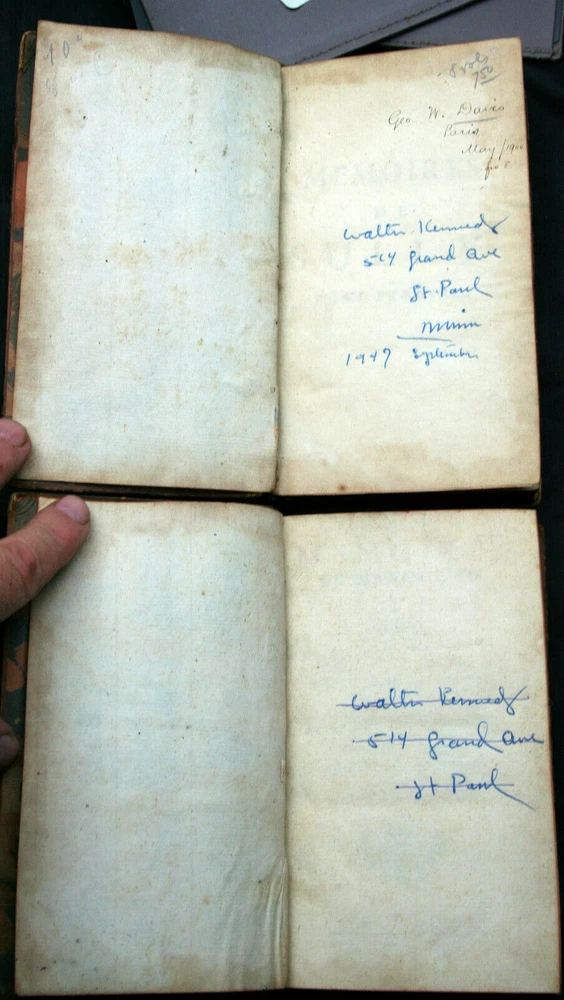 10
8 vols
7.50
Geo. W. Davis
Paris
May
Walter Kennedy
514 Grand Ave
St. Paul
Minn
1947 September
Walter Kennedy
514 Grand Ave
St Paul